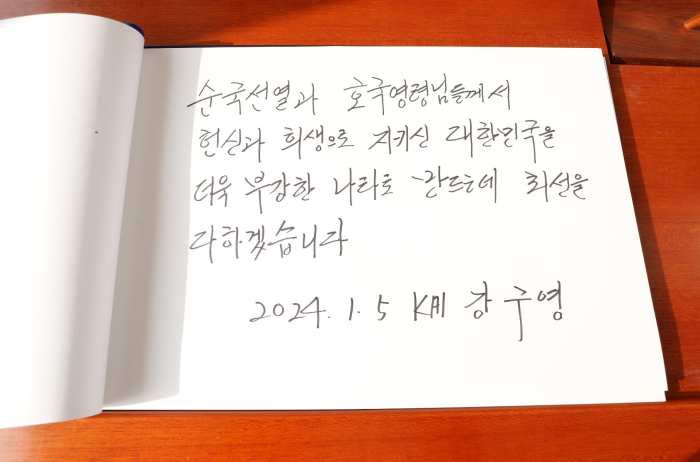 순국선열과 호국영령님들께서
헌신과 희생으로 지키신 대한민국을
더욱 부강한 나라로 만드는데 최선을
다하겠습니다
2024. 1. 5 KAI 강구영